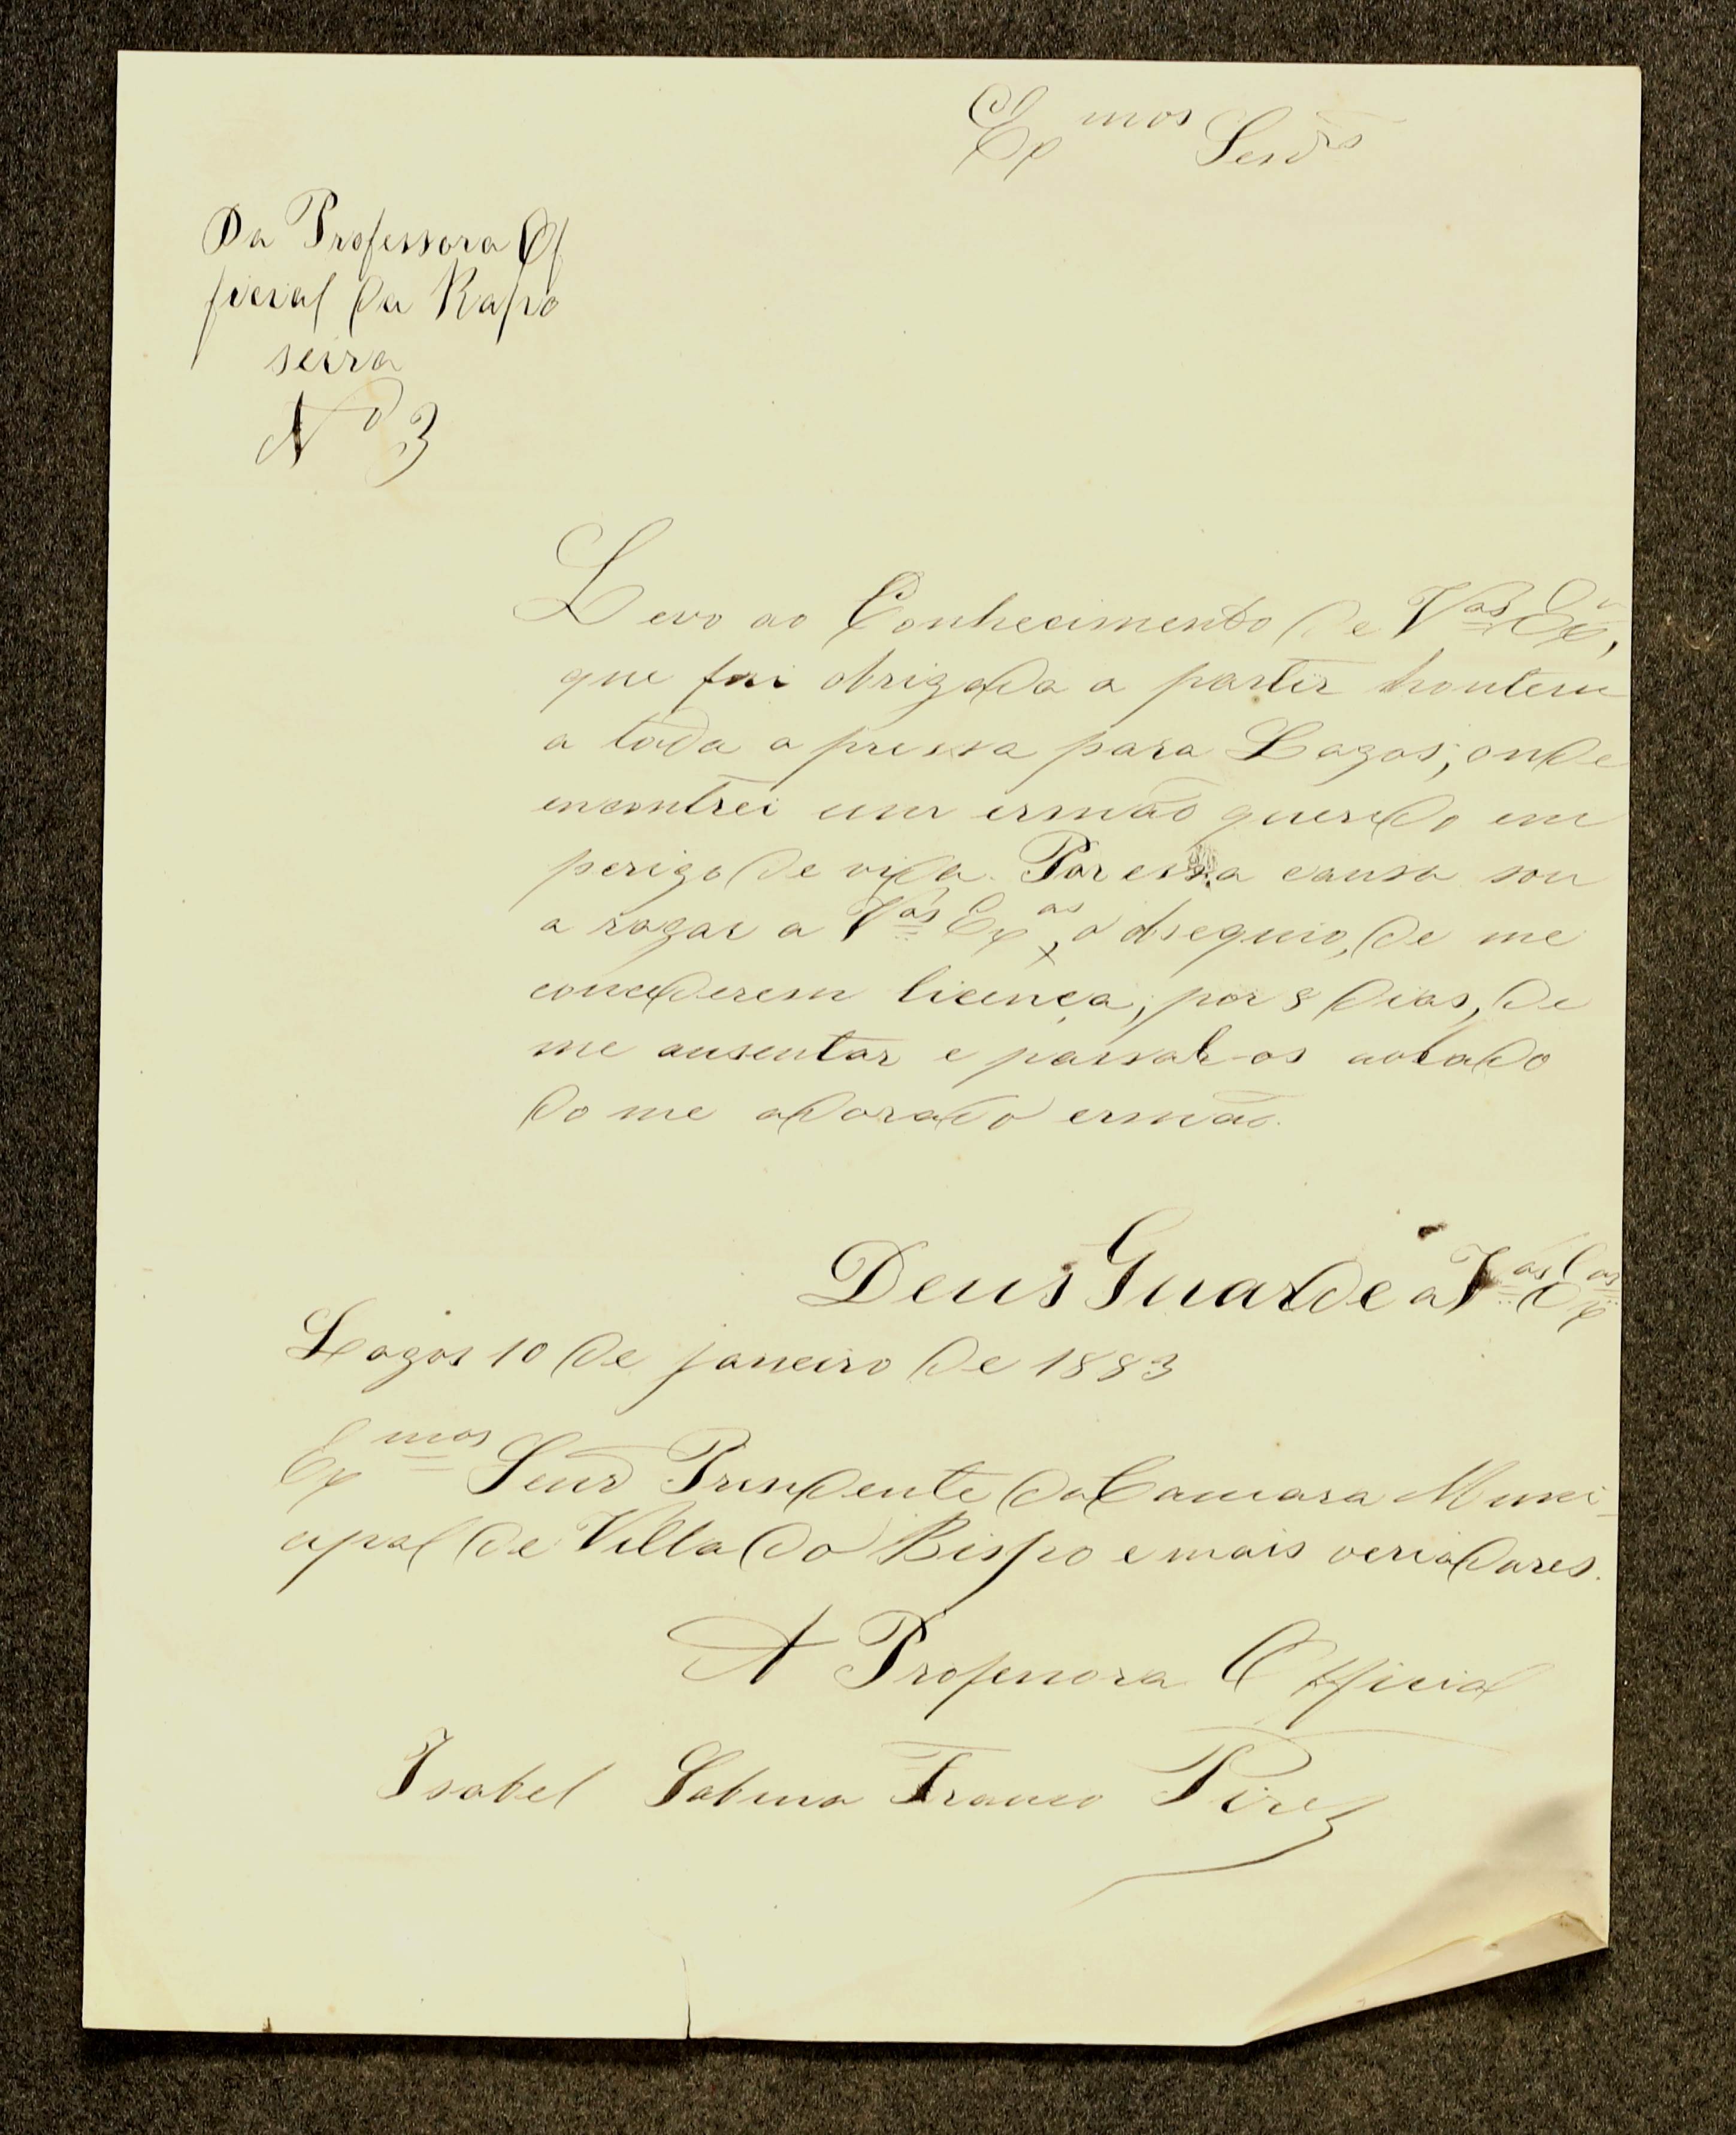 Exmos Senrs
Da Professora Of
ficial da Rapo
seira
No 3
Levo ao Conhecimento de Vas Exas,
que fui obrigada a partir hontem
a toda a pressa para Lagos, onde
encontrei um ermão querido em
perigo de vida. Por essa causa sou
a rogar a Vas Exas, o obsequio, de me
concederem licença, por 8 dias, de
me ausentar e passal-os ao lado
do me adorado ermão.
Deus Guarde a Vas Exas
Lagos 10 de janeiro de 1883
Exmos Senr Presidente da Camara Muni-
cipal de Villa do Bispo e mais veriadores.
A Professora Official
Isabel Sabina Franco Pires